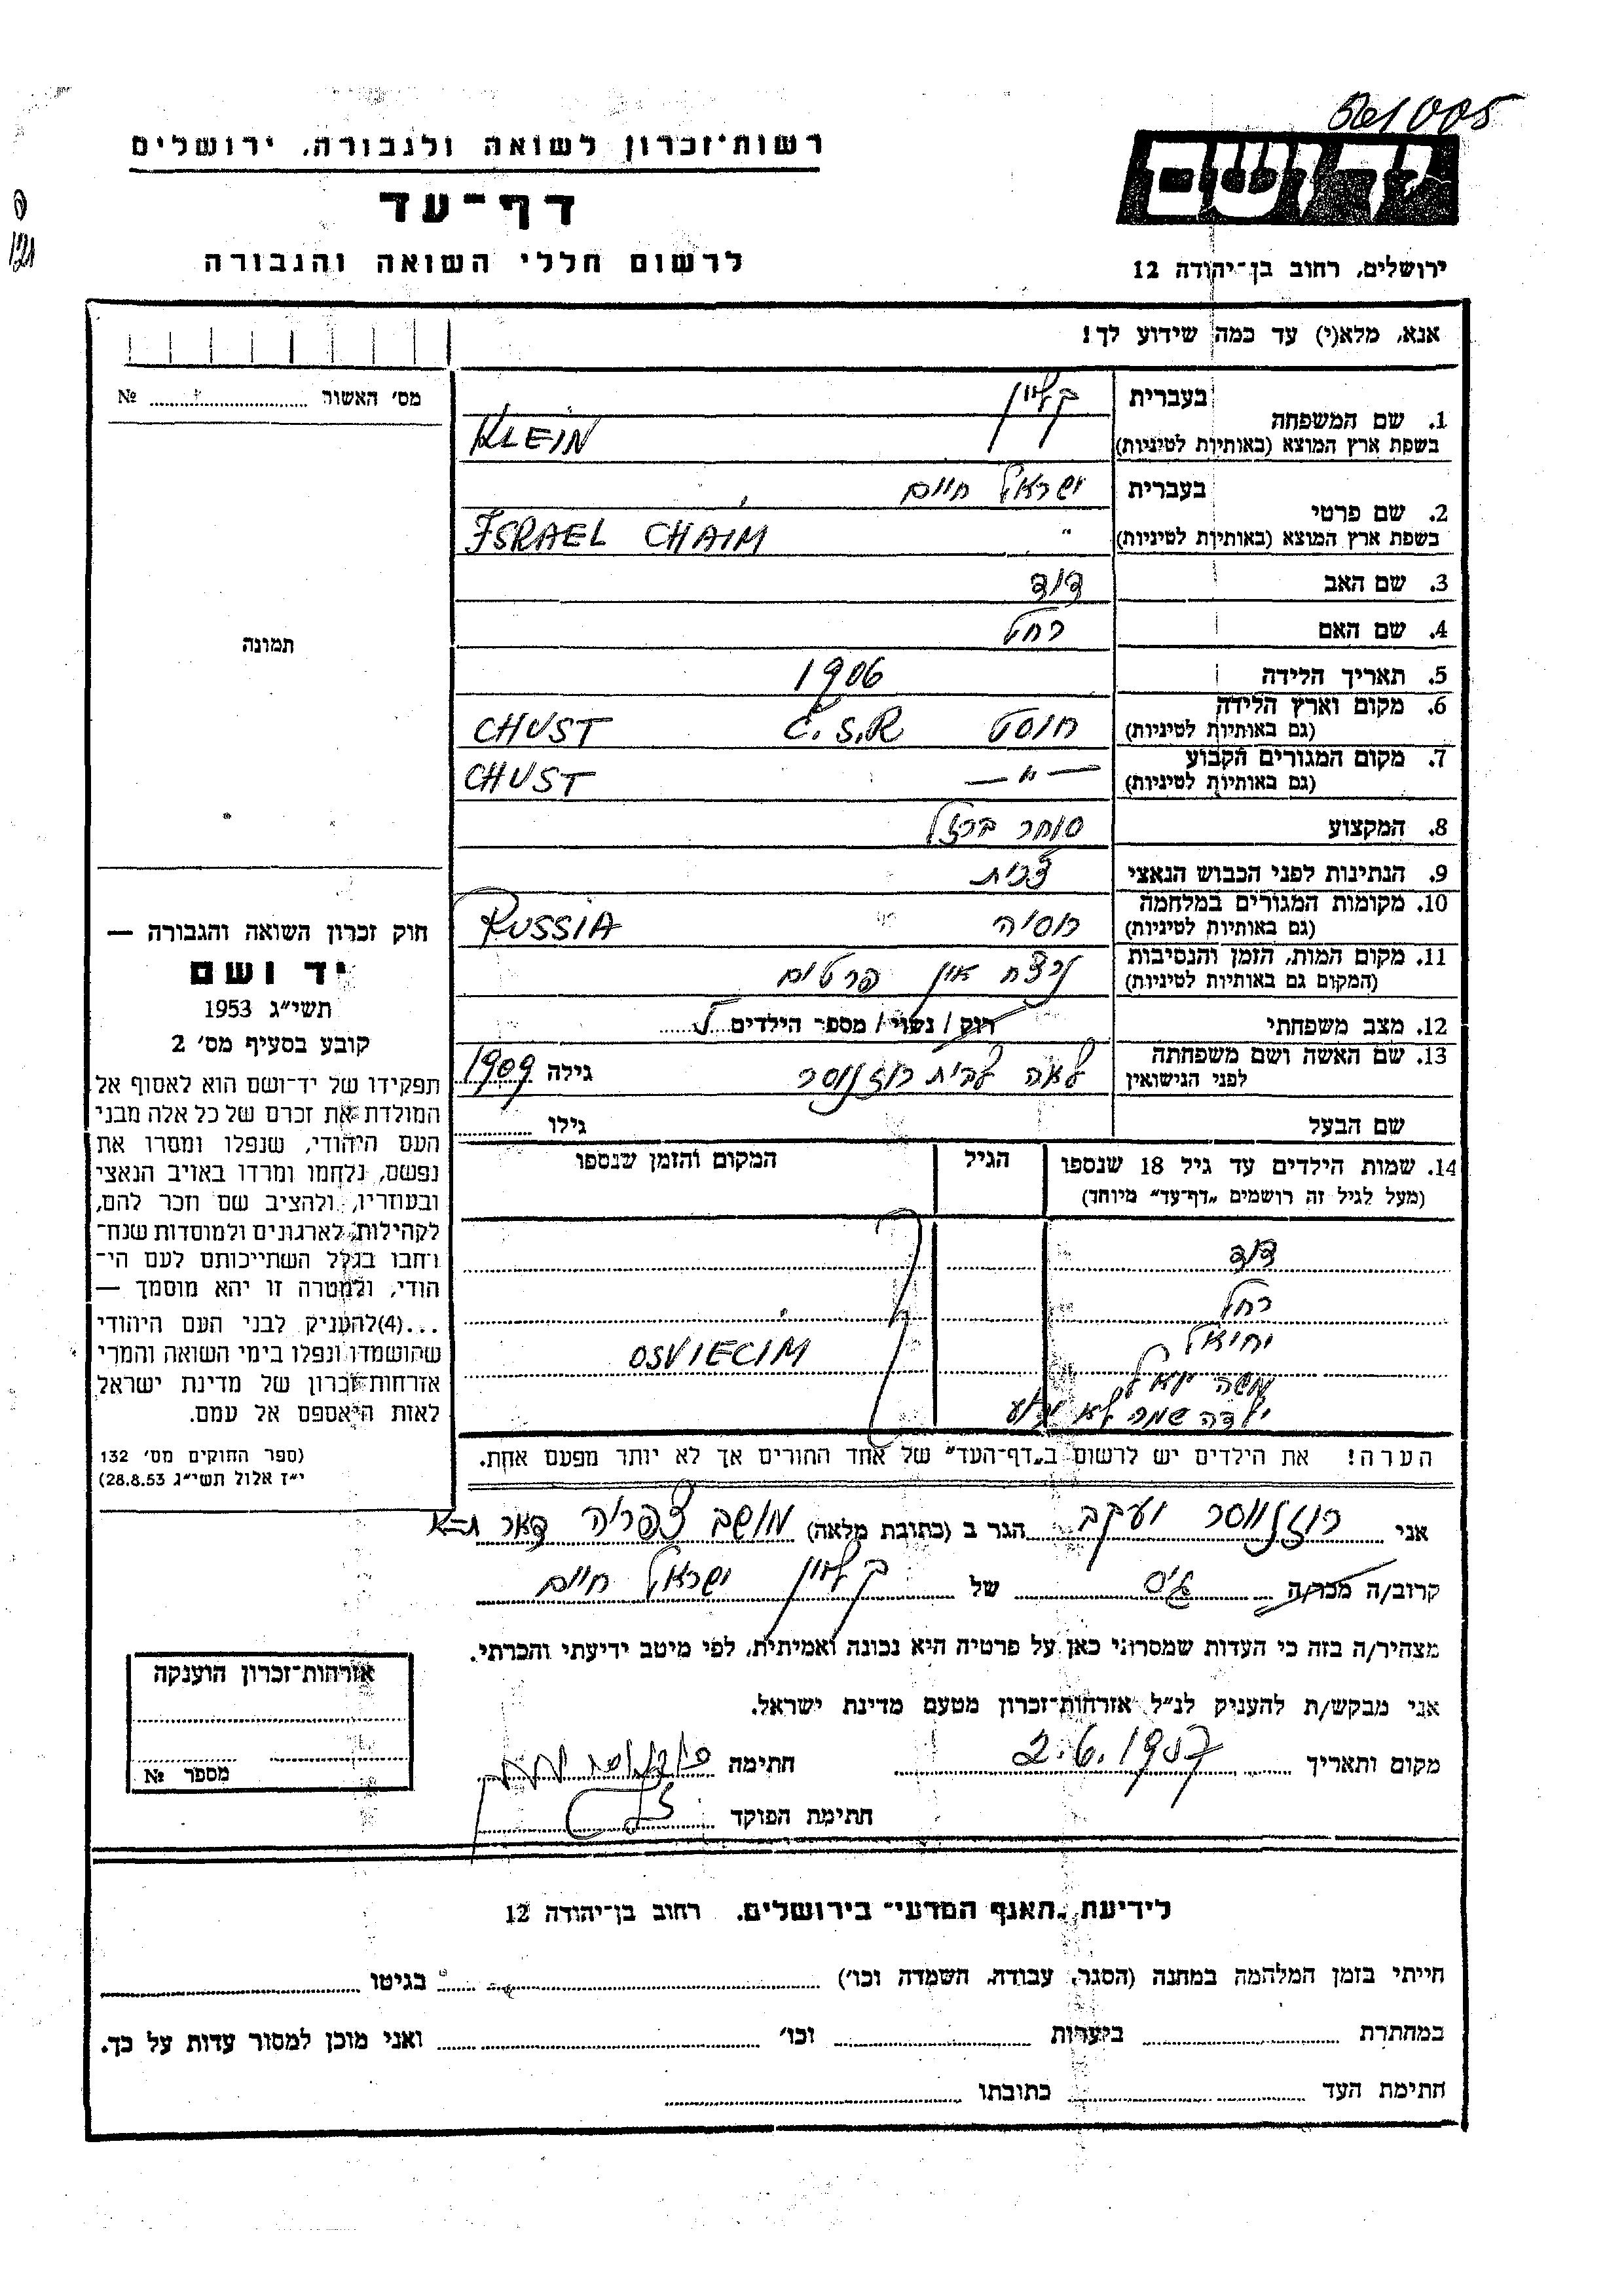 רשות־זכרון לשואה ולגבורה, ירושלים
דף־עד
לרשום חללי השואה והגבורה
יד ושם
ירושלים, רחוב בן־יהודה 12
אנא, מלא(י) עד כמה שידוע לך!
מס׳ האשור № ........
1. שם המשפחה בעברית קליין
בשפת ארץ המוצא (באותיות לטיניות) KLEIN
2. שם פרטי בעברית ישראל חיים
בשפת ארץ המוצא (באותיות לטיניות) " ISRAEL CHAIM
3. שם האב דוד
4. שם האם רחל
תמונה
5. תאריך הלידה 1906
6. מקום וארץ הלידה (גם באותיות לטיניות) חוסט Č.S.R CHUST
7. מקום המגורים הקבוע (גם באותיות לטיניות) —"— CHUST
8. המקצוע סוחר ברזל
9. הנתינות לפני הכבוש הנאצי צכית
10. מקומות המגורים במלחמה (גם באותיות לטיניות) רוסיה RUSSIA
11. מקום המות, הזמן והנסיבות (המקום גם באותיות לטיניות) נרצח אין פרטים
12. מצב משפחתי רווק / נשוי / מספר הילדים 5
13. שם האשה ושם משפחתה לפני הנישואין לאה לבית רוזנווסר גילה 1909
שם הבעל גילו ........
14. שמות הילדים עד גיל 18 שנספו (מעל לגיל זה רושמים „דף־עד” מיוחד) הגיל המקום והזמן שנספו
דוד
רחל
יחיאל
OSVIECIM
משה יואל
ילדה שמה לא ידוע
הערה! את הילדים יש לרשום ב„דף־העד” של אחד ההורים אך לא יותר מפעם אחת.
חוק זכרון השואה והגבורה —
יד ושם
תשי״ג 1953
קובע בסעיף מס׳ 2
תפקידו של יד־ושם הוא לאסוף אל
המולדת את זכרם של כל אלה מבני
העם היהודי, שנפלו ומסרו את
נפשם, נלחמו ומרדו באויב הנאצי
ובעוזריו, ולהציב שם וזכר להם,
לקהילות, לארגונים ולמוסדות שנח־
רבו בגלל השתייכותם לעם הי־
הודי, ולמטרה זו יהא מוסמך —
...(4)להעניק לבני העם היהודי
שהושמדו ונפלו בימי השואה והמרי
אזרחות־זכרון של מדינת ישראל
לאות היאספם אל עמם.
(ספר החוקים מס׳ 132
י״ז אלול תשי״ג 28.8.53)
אני רוזנווסר יעקב הגר ב (כתובת מלאה) מושב צפריה דאר
קרוב/ה מכר/ה גיס של קליין ישראל חיים
מצהיר/ה בזה כי העדות שמסרתי כאן על פרטיה היא נכונה ואמיתית, לפי מיטב ידיעתי והכרתי.
אני מבקש/ת להעניק לנ״ל אזרחות־זכרון מטעם מדינת ישראל.
מקום ותאריך 2.6.1957 חתימה
חתימת הפוקד
אזרחות־זכרון הוענקה
מספר №
לידיעת „האגף המדעי״ בירושלים, רחוב בן־יהודה 12
חייתי בזמן המלחמה במחנה (הסגר, עבודה, השמדה וכו׳) ........ בגיטו ........
במחתרת ........ ביערות ........ וכו׳ ........ ואני מוכן למסור עדות על כך.
חתימת העד ........ כתובתו ........